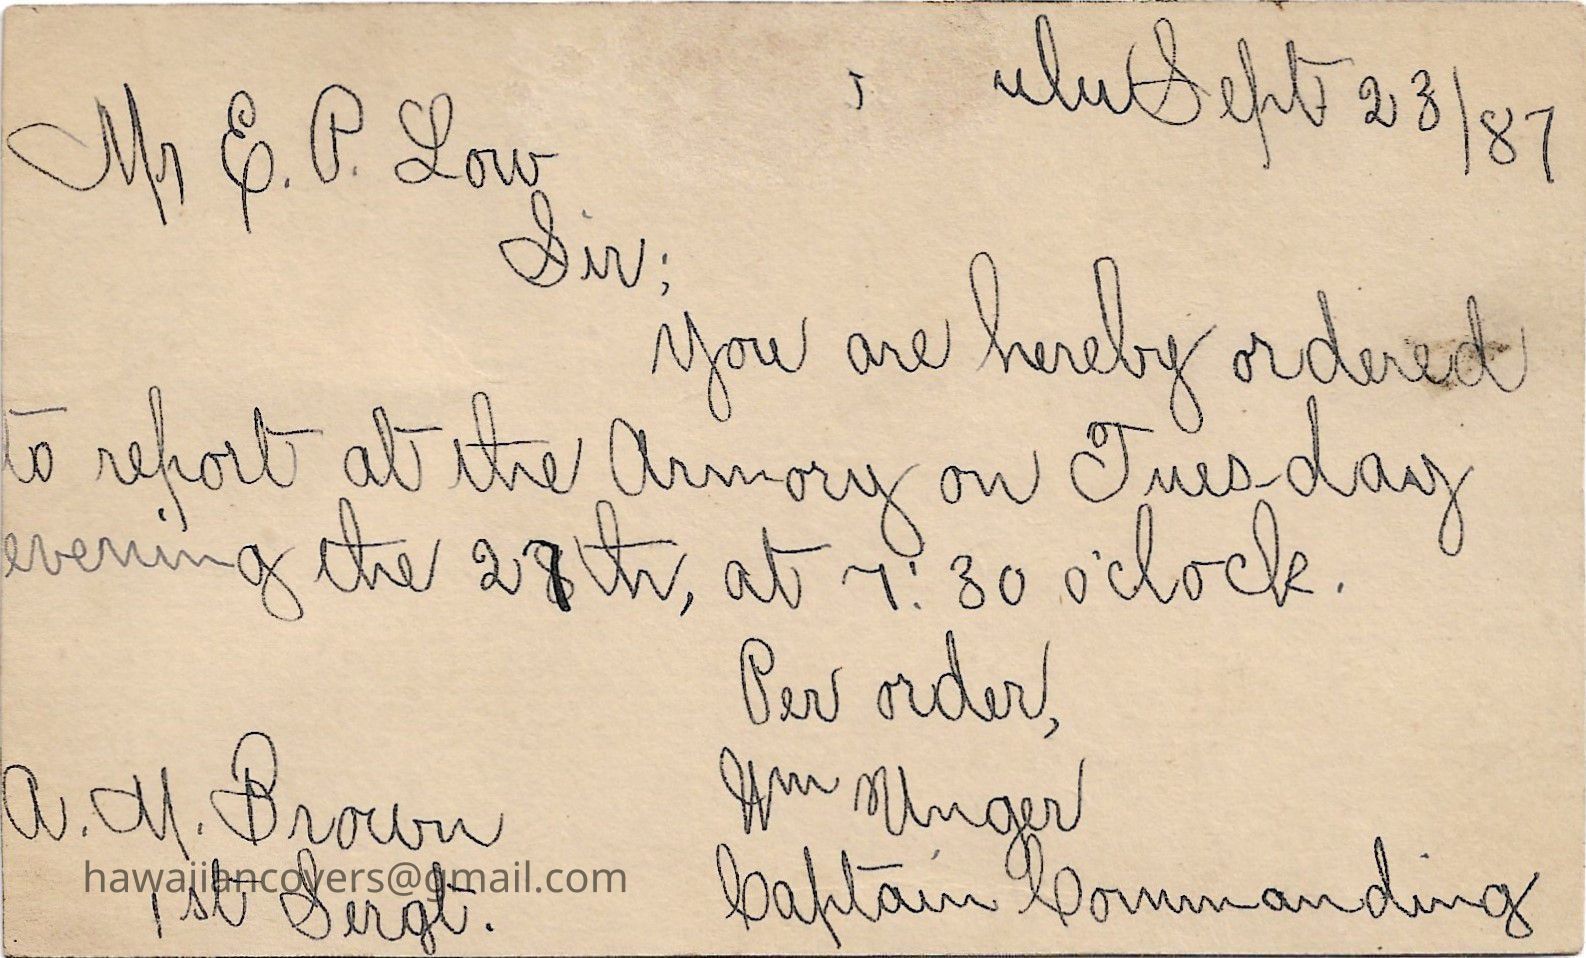 ulu Sept 23/87
Mr E. P. Low
Sir;
You are hereby ordered
to report at the Armory on Tuesday
evening the 27th, at 7:30 o'clock.
Per order,
A. M. Brown
Wm Unger
hawaiiancovers@gmail.com
1st Sergt.
Captain Commanding